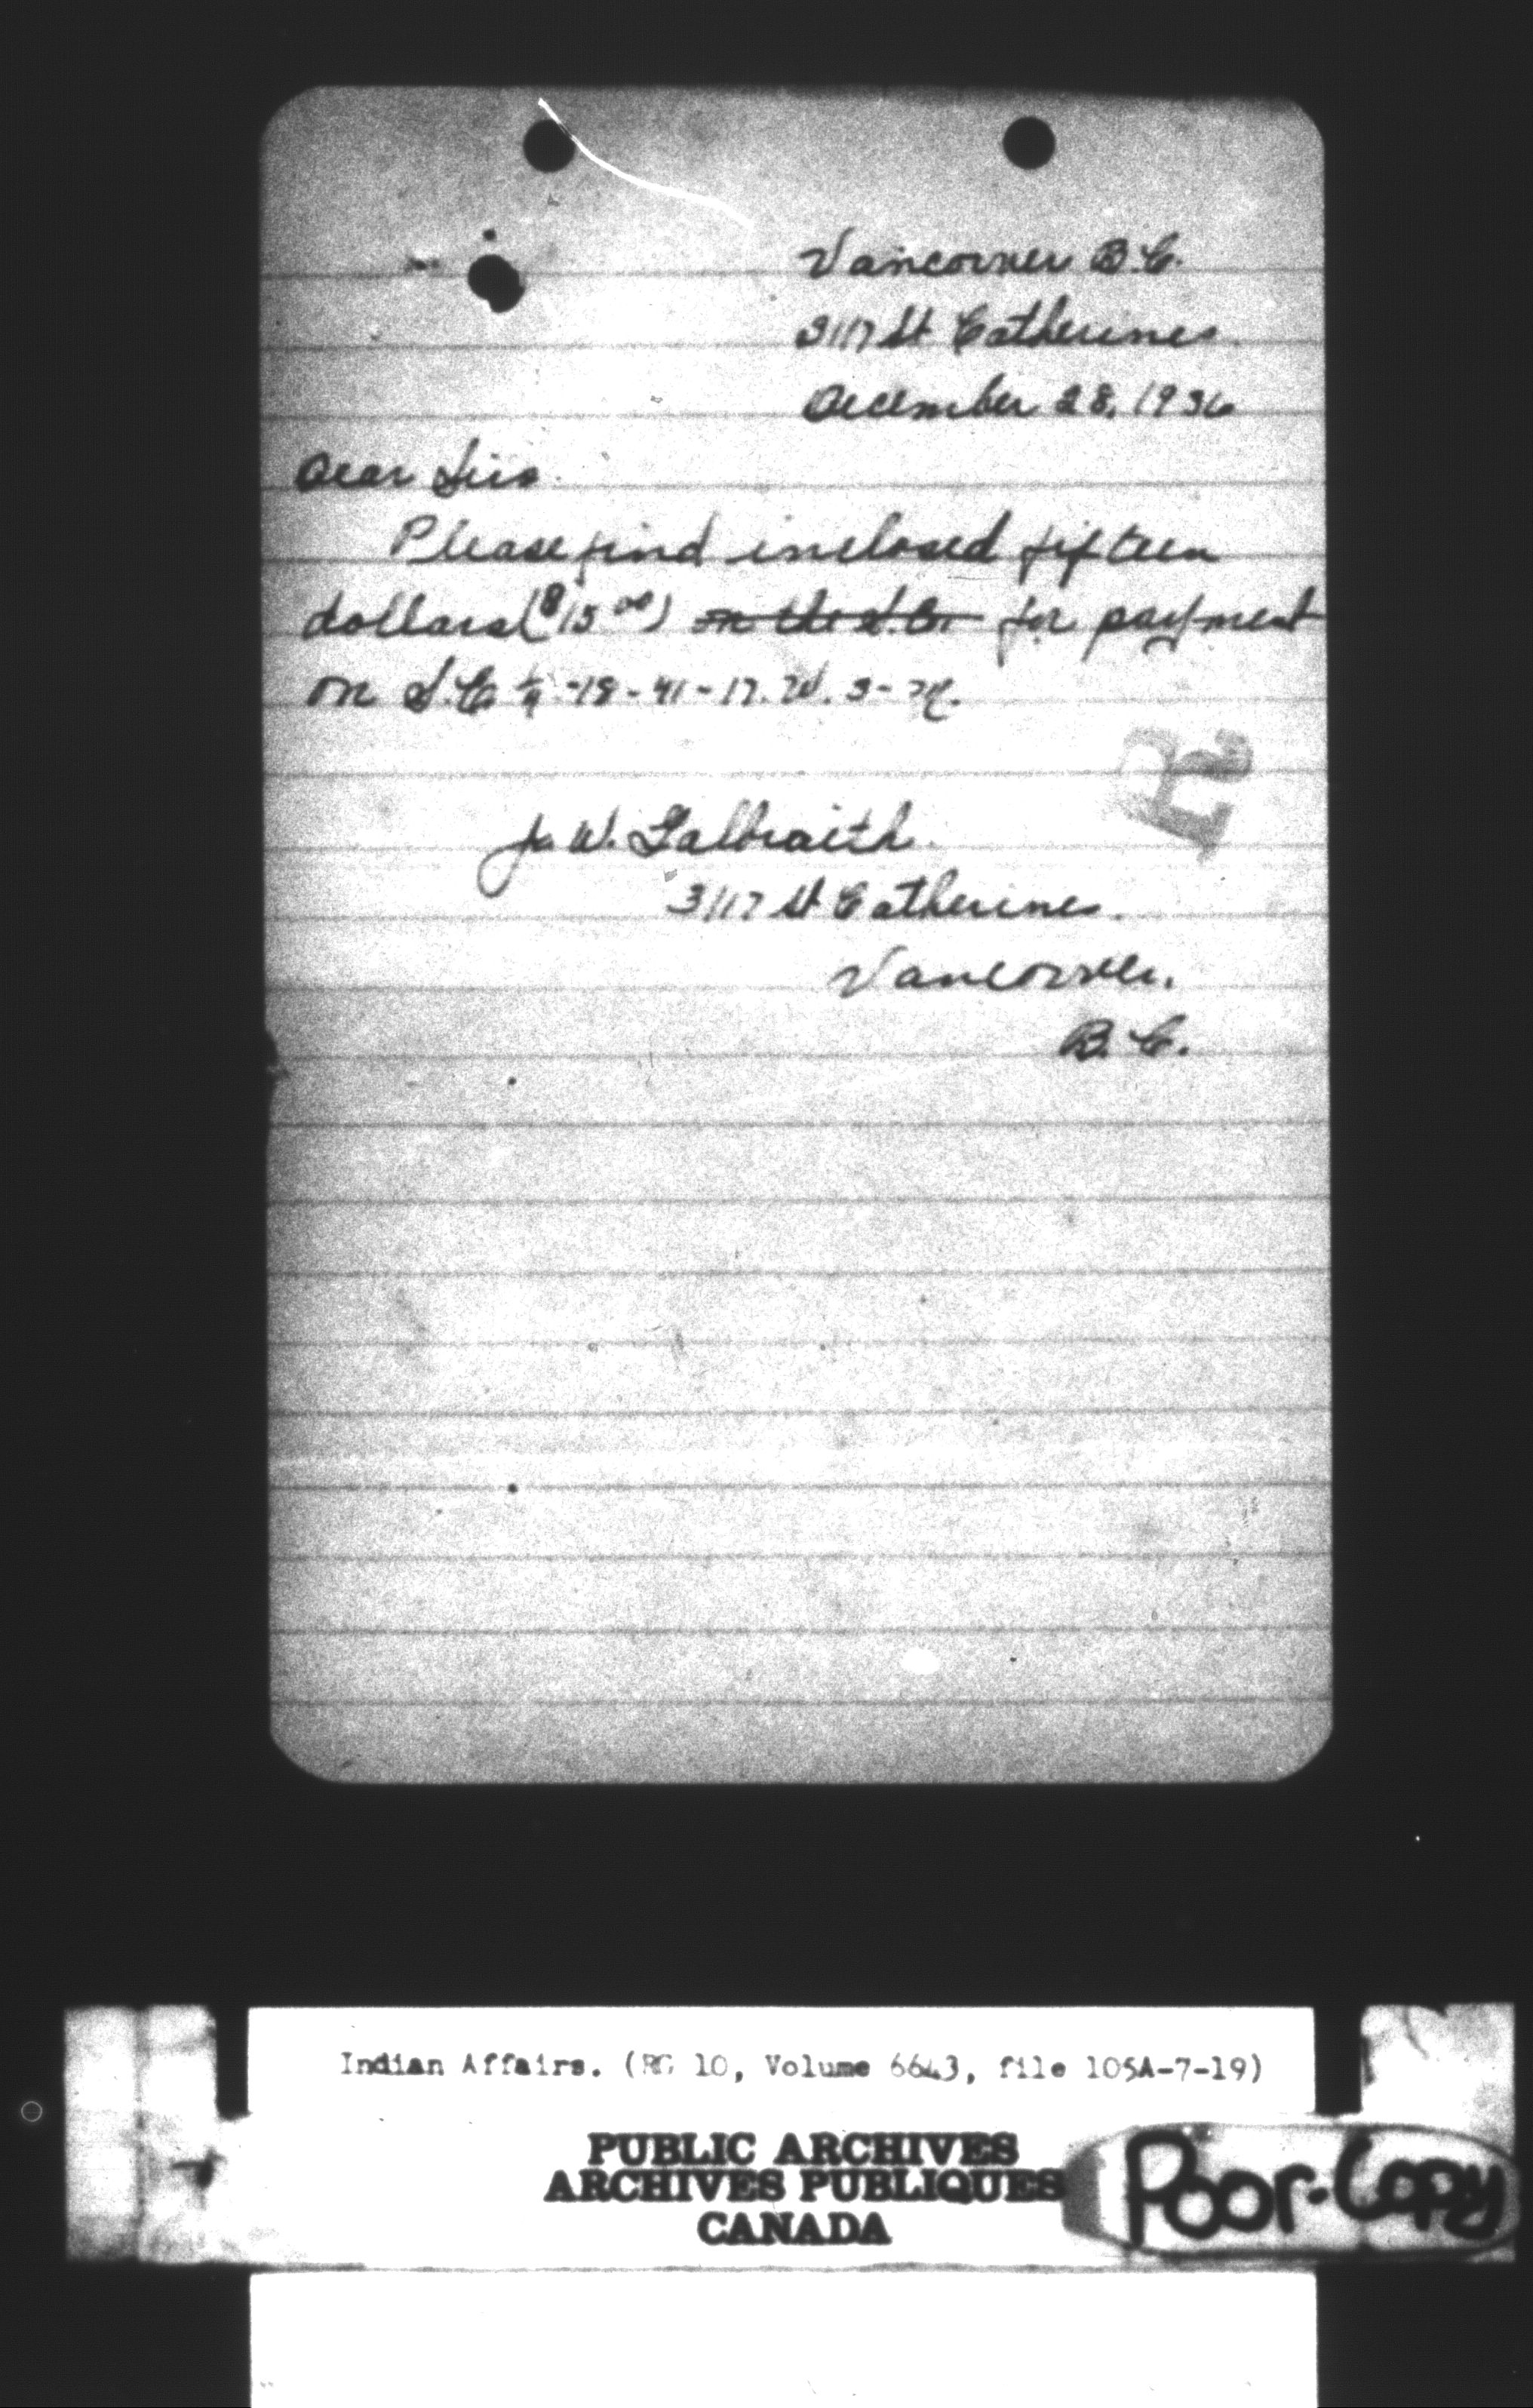 Vancouver B.C.
3117 St Catherines.
December 28, 1936
Dear Sirs.
Please find inclosed fifteen
dollars ($15 00) on the S.E. for payment
on S.E 1/4 -18-41-17. W. 3- M.
J. W. Galbraith.
3117 St Catherines.
Vancouver.
B.C.
R
Indian Affairs. (RG 10, Volume 6643, file 105A-7-19)
PUBLIC ARCHIVES
ARCHIVES PUBLIQUES
CANADA
Poor-Copy